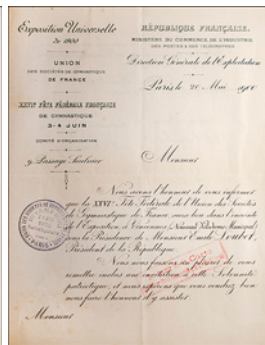 Exposition Universelle
de 1900
UNION
DES SOCIÉTÉS DE GYMNASTIQUE
DE FRANCE
XXVIe FÊTE FÉDÉRALE FRANÇAISE
DE GYMNASTIQUE
3-4 JUIN
COMITÉ D'ORGANISATION
9, Passage Saulnier
RÉPUBLIQUE FRANÇAISE.
MINISTÈRE DU COMMERCE, DE L'INDUSTRIE,
DES POSTES & DES TÉLÉGRAPHES
Direction Générale de l'Exploitation
Paris le 28 Mai 1900
Monsieur
Nous avons l'honneur de vous informer
que la XXVIe Fête Fédérale de l'Union des Sociétés
de Gymnastique de France, aura lieu dans l'enceinte
de l'Exposition, à Vincennes (Nouveau Vélodrome Municipal)
sous la Présidence de Monsieur Emile Loubet,
Président de la République.
Nous nous faisons un plaisir de vous
remettre incluse une invitation à cette Solennité
patriotique, et nous espérons que vous voudrez bien
nous faire l'honneur d'y assister.
Monsieur